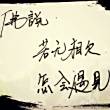 佛說
若无相欠
怎會遇見